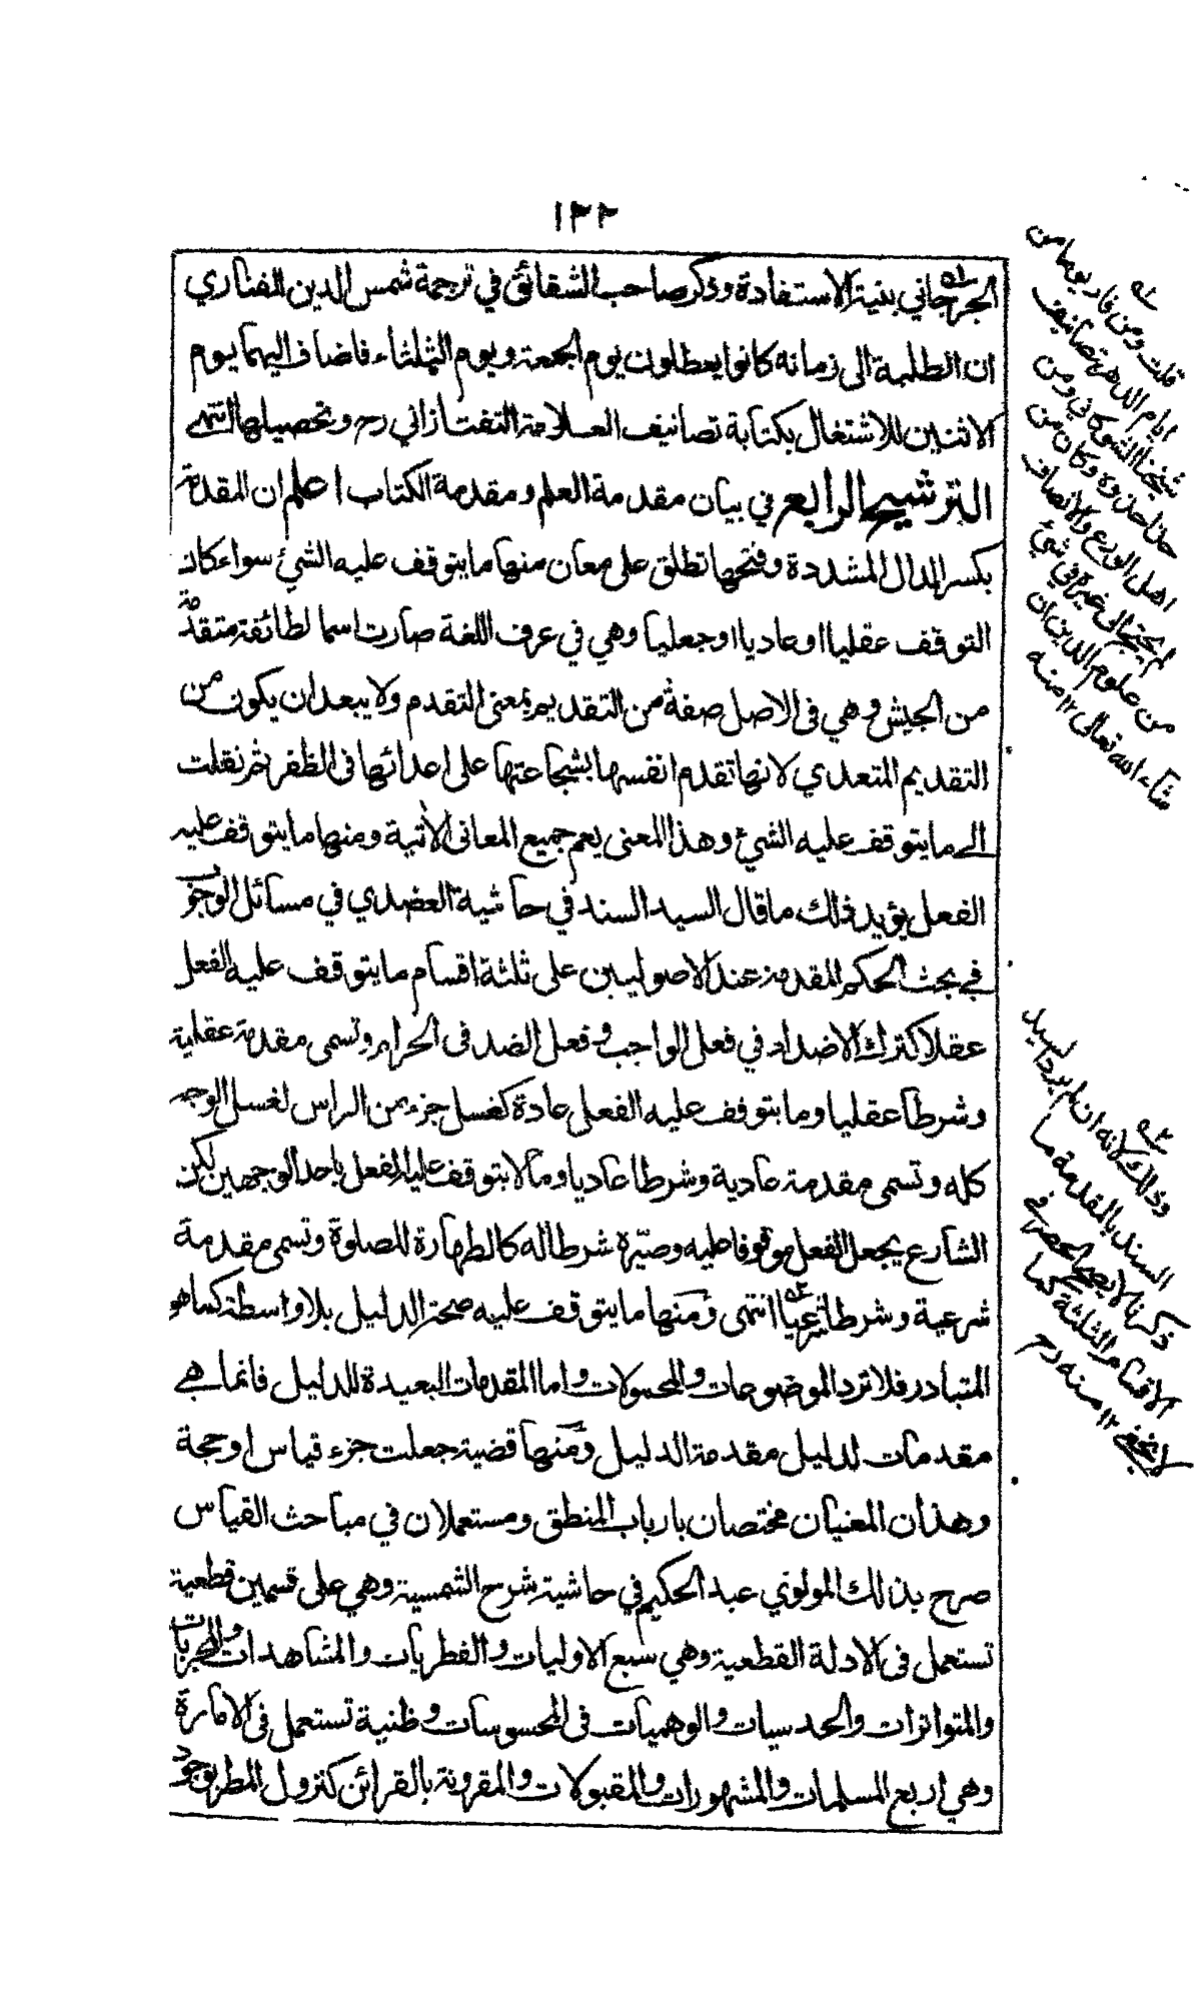 ١٣٢
الجرجاني بنية الاستفادة وذكر صاحب الشقائق في ترجمة شمس الدين الفناري
ان الطلبة الى زمانه كانوا يعطلون يوم الجمعة ويوم الثلثاء فاضاف اليهما يوم
الاثنين للاشتغال بكتابة تصانيف العلامة التفتازاني رح وتحصيلها انتهى
الترشيح الرابع في بيان مقدمة العلم ومقدمة الكتاب اعلم ان المقدمة
بكسر الدال المشددة وفتحها تطلق على معان منها ما يتوقف عليه الشئ سواء كان
التوقف عقليا او عاديا او جعليا وهي في عرف اللغة صارت اسما لطائفة متقدمة
من الجيش وهي فى الاصل صفة من التقديم بمعنى التقدم ولا يبعد ان يكون من
التقديم المتعدي لانها تقدم انفسها بشجاعتها على اعدائها فى الظفر ثم نقلت
الى ما يتوقف عليه الشئ وهذا المعنى يعم جميع المعانى الآتية ومنها ما يتوقف عليه
الفعل يؤيد ذلك ما قال السيد السند في حاشية العضدي في مسائل الوجوب
في بحث الحكم المقدمة عند الاصوليين على ثلثة اقسام ما يتوقف عليه الفعل
عقلا كترك الاضداد في فعل الواجب وفعل الضد فى الحرام وتسمى مقدمة عقلية
وشرطا عقليا وما يتوقف عليه الفعل عادة كغسل جزء من الراس لغسل الوجه
كله وتسمى مقدمة عادية وشرطا عاديا وما لا يتوقف عليه الفعل باحد الوجهين لكن
الشارع يجعل الفعل موقوفا عليه وصيّره شرطا له كالطهارة للصلوة وتسمى مقدمة
شرعية وشرطا شرعيا انتهى ومنها ما يتوقف عليه صحة الدليل بلا واسطة كما هو
المتبادر فلا ترد الموضوعات والمحمولات واما المقدمات البعيدة للدليل فانما هي
مقدمات لدليل مقدمة الدليل ومنها قضية جعلت جزء قياس او حجة
وهذان المعنيان مختصان بارباب المنطق ومستعملان في مباحث القياس
صرح بذالك المولوي عبد الحكيم في حاشية شرح الشمسية وهي على قسمين قطعية
تستعمل فى الادلة القطعية وهي سبع الاوليات والفطريات والمشاهدات والمجربات
والمتواترات والحدسيات والوهميات فى المحسوسات وظنية تستعمل فى الامارة
وهي اربع المسلمات والمشهورات والمقبولات والمقرونة بالقرائن كنزول المطر بوجود
قلت ومن فاز يوما من
ايام الدهر بتصانيف
شيخنا الشوكاني ومن
حذا حذوه وكان من
اهل الورع والانصاف
لم يحتج الى غيره في شئ
من علوم الدين ان
شاء الله تعالى ١٢ منه
وذلك لانه ان لم يرد السيد
السند بالمقدمة ما
ذكرنا لا يصح الحصر في
الاقسام الثلثة كما
لا يخفى ١٢ منه رح